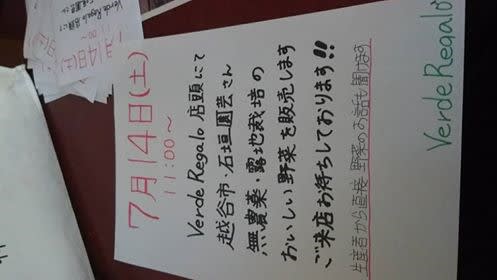 7月14日(土)
11:00〜
Verde Regalo 店頭にて
越谷市・石垣園芸さん
無農薬・露地栽培の
おいしい野菜を販売します
ご来店お待ちしております!!
生産者から直接 野菜のお話も聞けます
Verde Regalo
Verde Regalo 店頭にて
11:00〜
月14日(土)